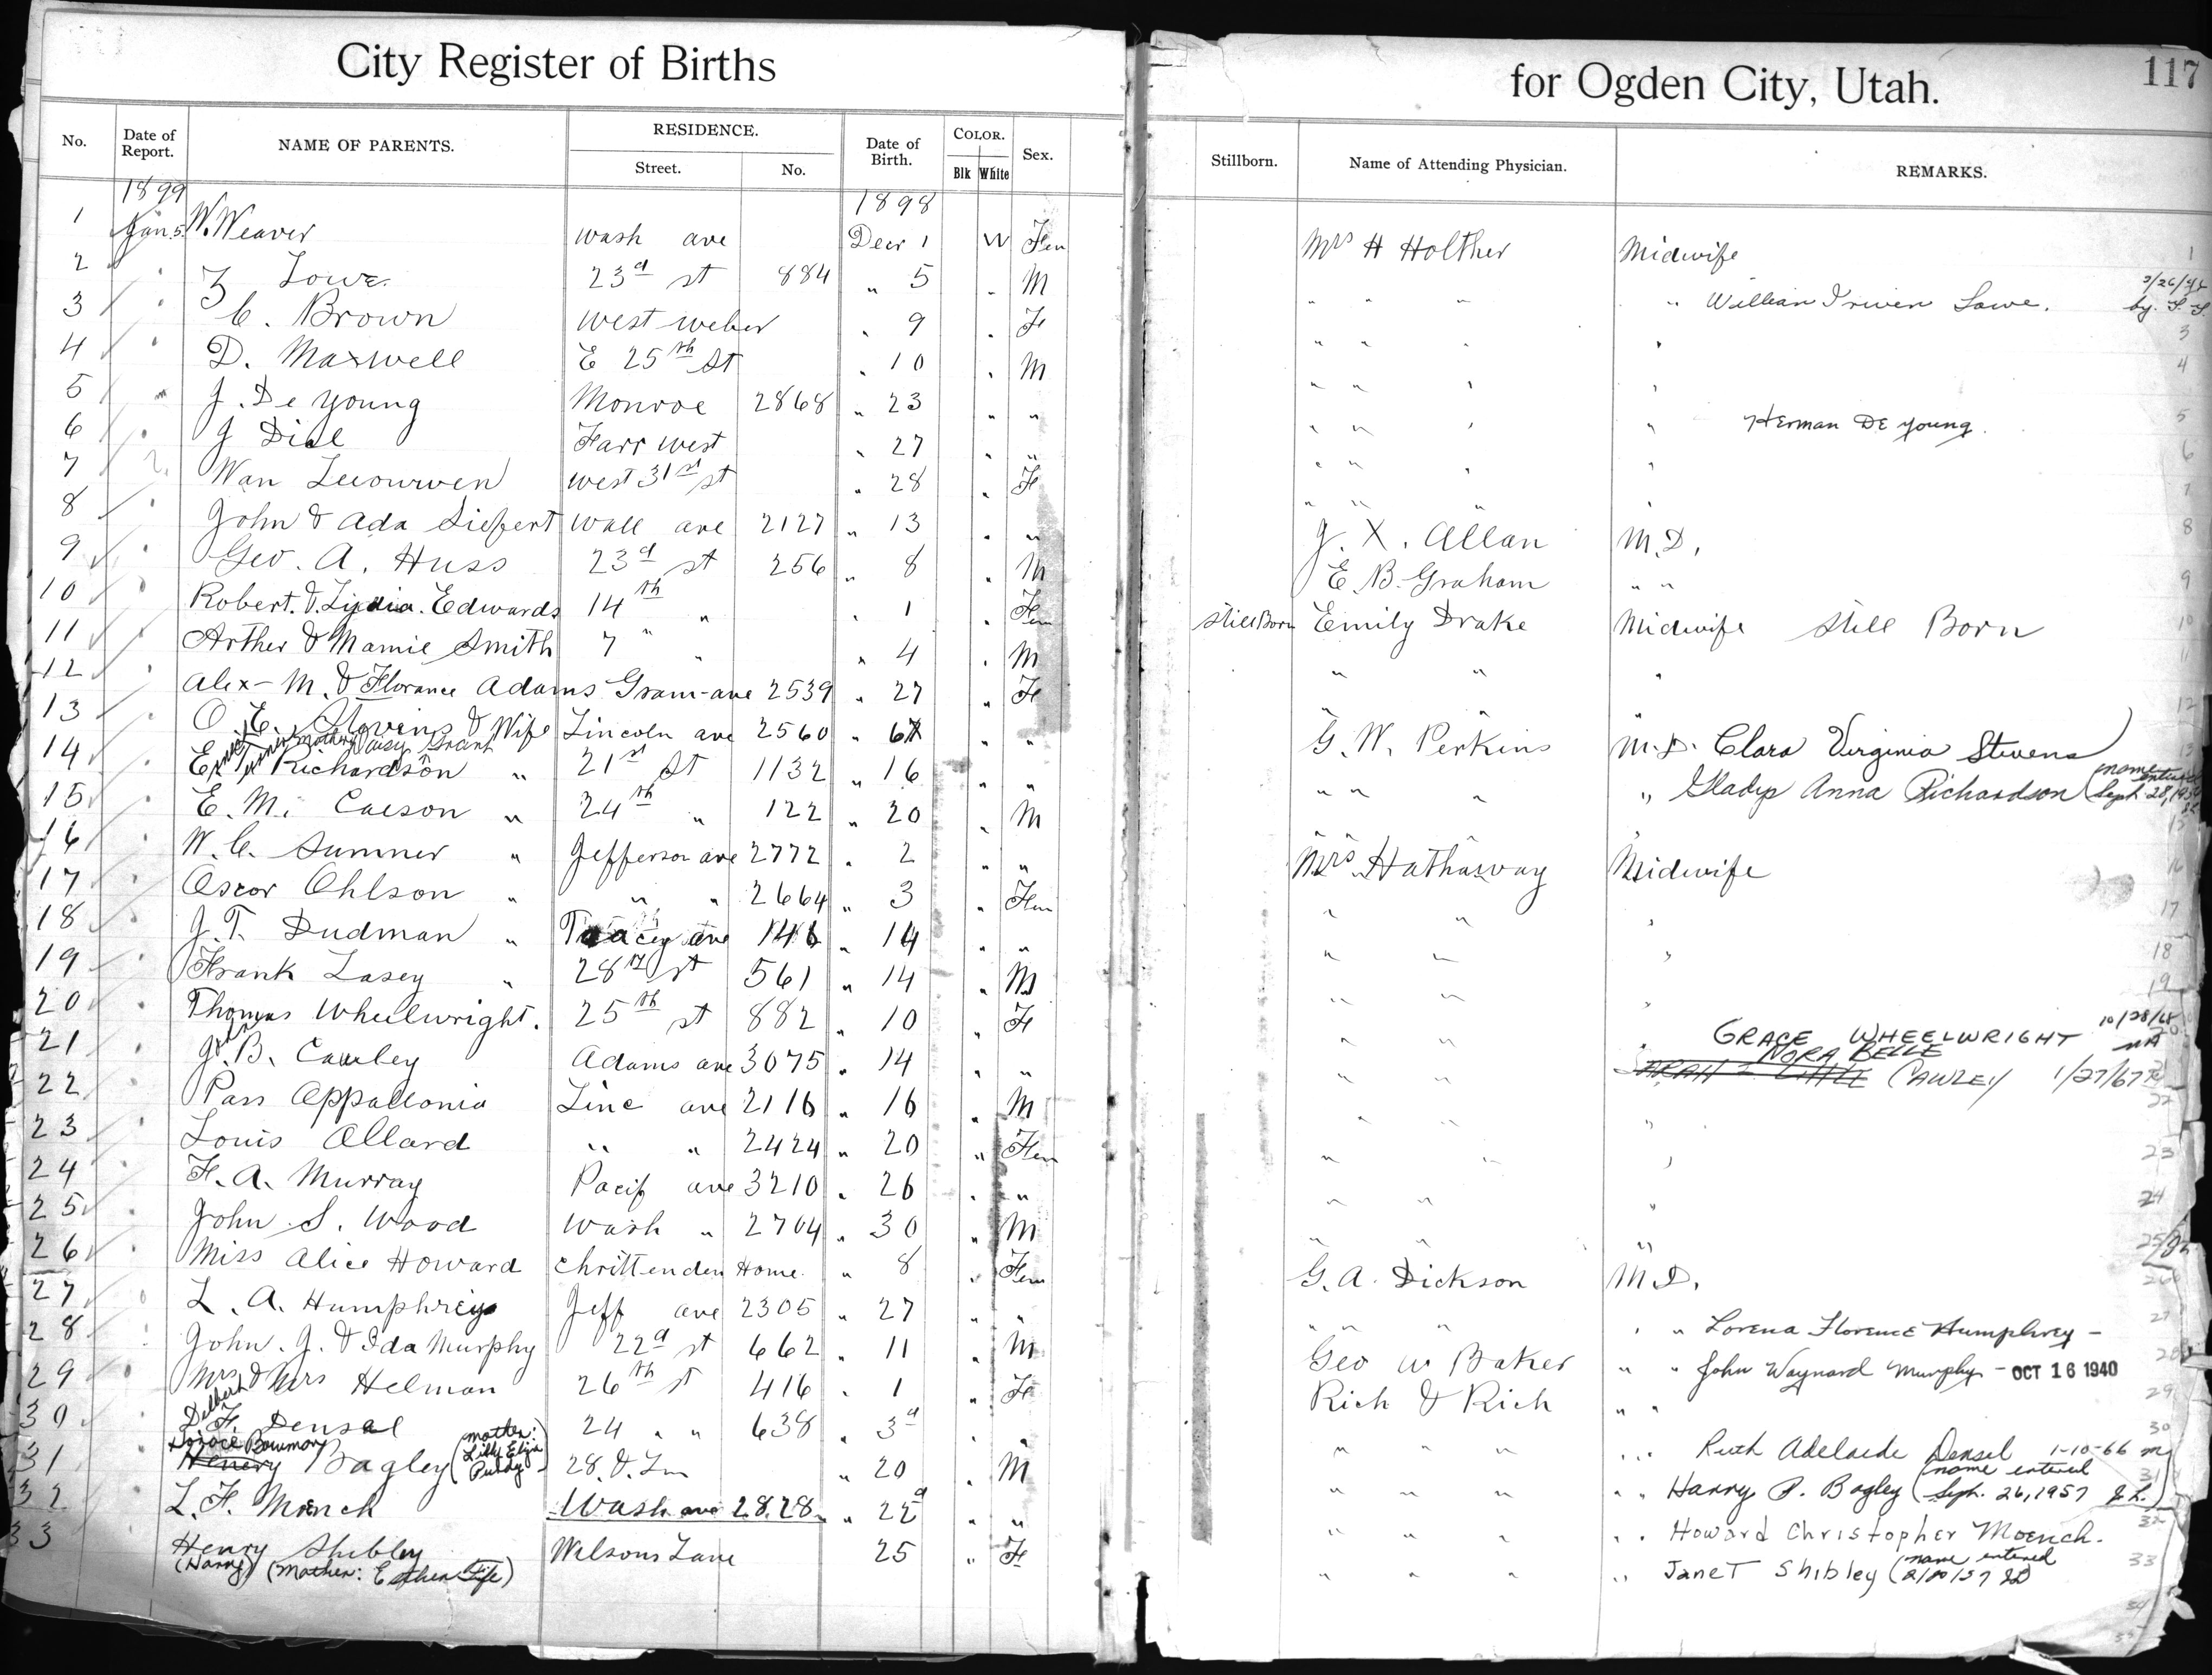 City Register of Births for Ogden City, Utah. 117
No. Date of Report. NAME OF PARENTS. RESIDENCE. Street. No. Date of Birth. COLOR. Blk White Sex. Stillborn. Name of Attending Physician. REMARKS.
1899 1898
1 Jan 5 W. Weaver Wash ave Decr 1 W Fem Mrs H Holther Midwife 1
2 Lowe 23d st 884 " 5 " M " " " " William Irwen Lowe. 3/26/42 by
3 C. Brown West Weber " 9 " F " " " " 3
4 D. Maxwell E 25th St " 10 " M " " " " 4
5 " J. De Young Monroe 2868 " 23 " " " " " " Herman De Young. 5
6 " J Dial Farr West " 27 " " " " " " 6
7 Van West 31st st " 28 " F " " " " 7
8 " John & Ada Siefert Wall ave 2127 " 13 " " J. X. Allan M.D. 8
9 " Geo. A. Huss 23d st 256 " 8 " M E. B. Graham " " 9
10 " Robert & Lydia Edwards 14th " " 1 " Fem StillBorn Emily Drake Midwife Still Born 10
11 " Arther & Mamie Smith 7 " " " 4 " M " " " 11
12 " Alex M. & Florance Adams Gram ave 2539 " 27 " F " " " 12
13 " O. E. Stevens & Wife Lincoln ave 2560 " 6 " " G. W. Perkins M.D. Clara Virginia Stevens 13
14 " Richardson " 21st St 1132 " 16 " " " " " " Gladys Anna Richardson (name entered Sept. 28, 19
15 " E. M. " 24th " 122 " 20 " M " " " 15
16 " W. C. Sumner " Jefferson ave 2772 " 2 " " Mrs Hathaway Midwife 16
17 " Oscor Ohlson " " " 2664 " 3 " Fem " " " 17
18 " J. T. Dudman " Tracey ave 146 " 14 " " " " " 18
19 " Frank Lasey " 28th st 561 " 14 " M " " " 19
20 " Thomas Wheelwright. 25th st 882 " 10 " F " " " GRACE WHEELWRIGHT 10/28/65 20
21 " J. B. Cawley Adams ave 3075 " 14 " " " " NORA BELLE CAWLEY 1/27/67
22 " Pass Appollonio Linc ave 2116 " 16 " M " " " 22
23 " Louis Allard " " 2424 " 20 " Fem " " " 23
24 " F. A. Murray Pacif ave 3210 " 26 " " " " " 24
25 " John S. Wood Wash " 2704 " 30 " M " " " 25
26 " Miss Alice Howard Chrittenden Home " 8 " Fem G. A. Dickson M.D. 26
27 " L. A. Humphreys Jeff ave 2305 " 27 " " " " " " " Lorena Florence Humphrey - 27
28 " John. J. & Ida Murphy 22d st 662 " 11 " M Geo W Baker " " John Waynard Murphy - OCT 16 1940 28
29 " Mrs & Mrs Helman 26th st 416 " 1 " F Rich & Rich " " 29
Delbert
30 " F. Densel 24 " " 638 " 3d " " " " " " " Ruth Adelaide Densel 1-10-66 30
Horace Bowman (mother: Lilly Eliza Purdy)
31 " Henery Bagley 28. & Lin " 20 " M " " " " " Harry P. Bagley (name entered Sept. 26, 1957 31
32 L. F. Mœnch Wash ave 2828 " 22d " " " " " " " Howard Christopher Moench. 32
33 Henry Shibley Wilsons Lane 25 " F " " " " Janet Shibley (name entered 33
(Harry) (Mother: Esther Fife)
34
35